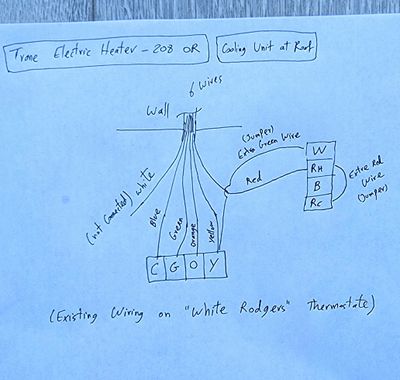 Trane Electric Heater - 208 OR
Cooling Unit at Roof
6 Wires
Wall
(Jumper)
Extra Green Wire
W
RH
B
RC
Red
Extre Red
Wire
(Jumper)
(not connected) white
Blue
Green
Orange
Yellow
C G O Y
(Existing Wiring on "White Rodgers" Thermostate)